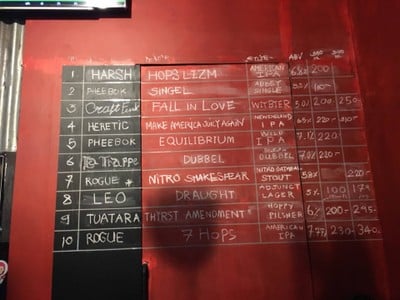 NAME STYLE ABV
1 HARSH HOPS LIZM AMERICAN IPA 200
2 PHEEBOK SINGEL ABBEY SINGLE
3 Craft FALL IN LOVE WITBIER 5.0% 200- 250-
4 HERETIC MAKE AMERICA JUICY AGAIN NEW ENGLAND IPA
5 PHEEBOK EQUILIBRIUM WILD IPA 7.1% 220
6 La Trappe DUBBEL DUBBEL 7.0% 220-
7 ROGUE NITRO SHAKESPEAR NITRO OATMEAL STOUT
8 LEO DRAUGHT ADJUNCT LAGER 5% 100
9 TUATARA THYRST AMENDMENT HOPPY PILSNER 6% 200- 245-
10 ROGUE 7 HOPS AMERICAN IPA 230- 340-